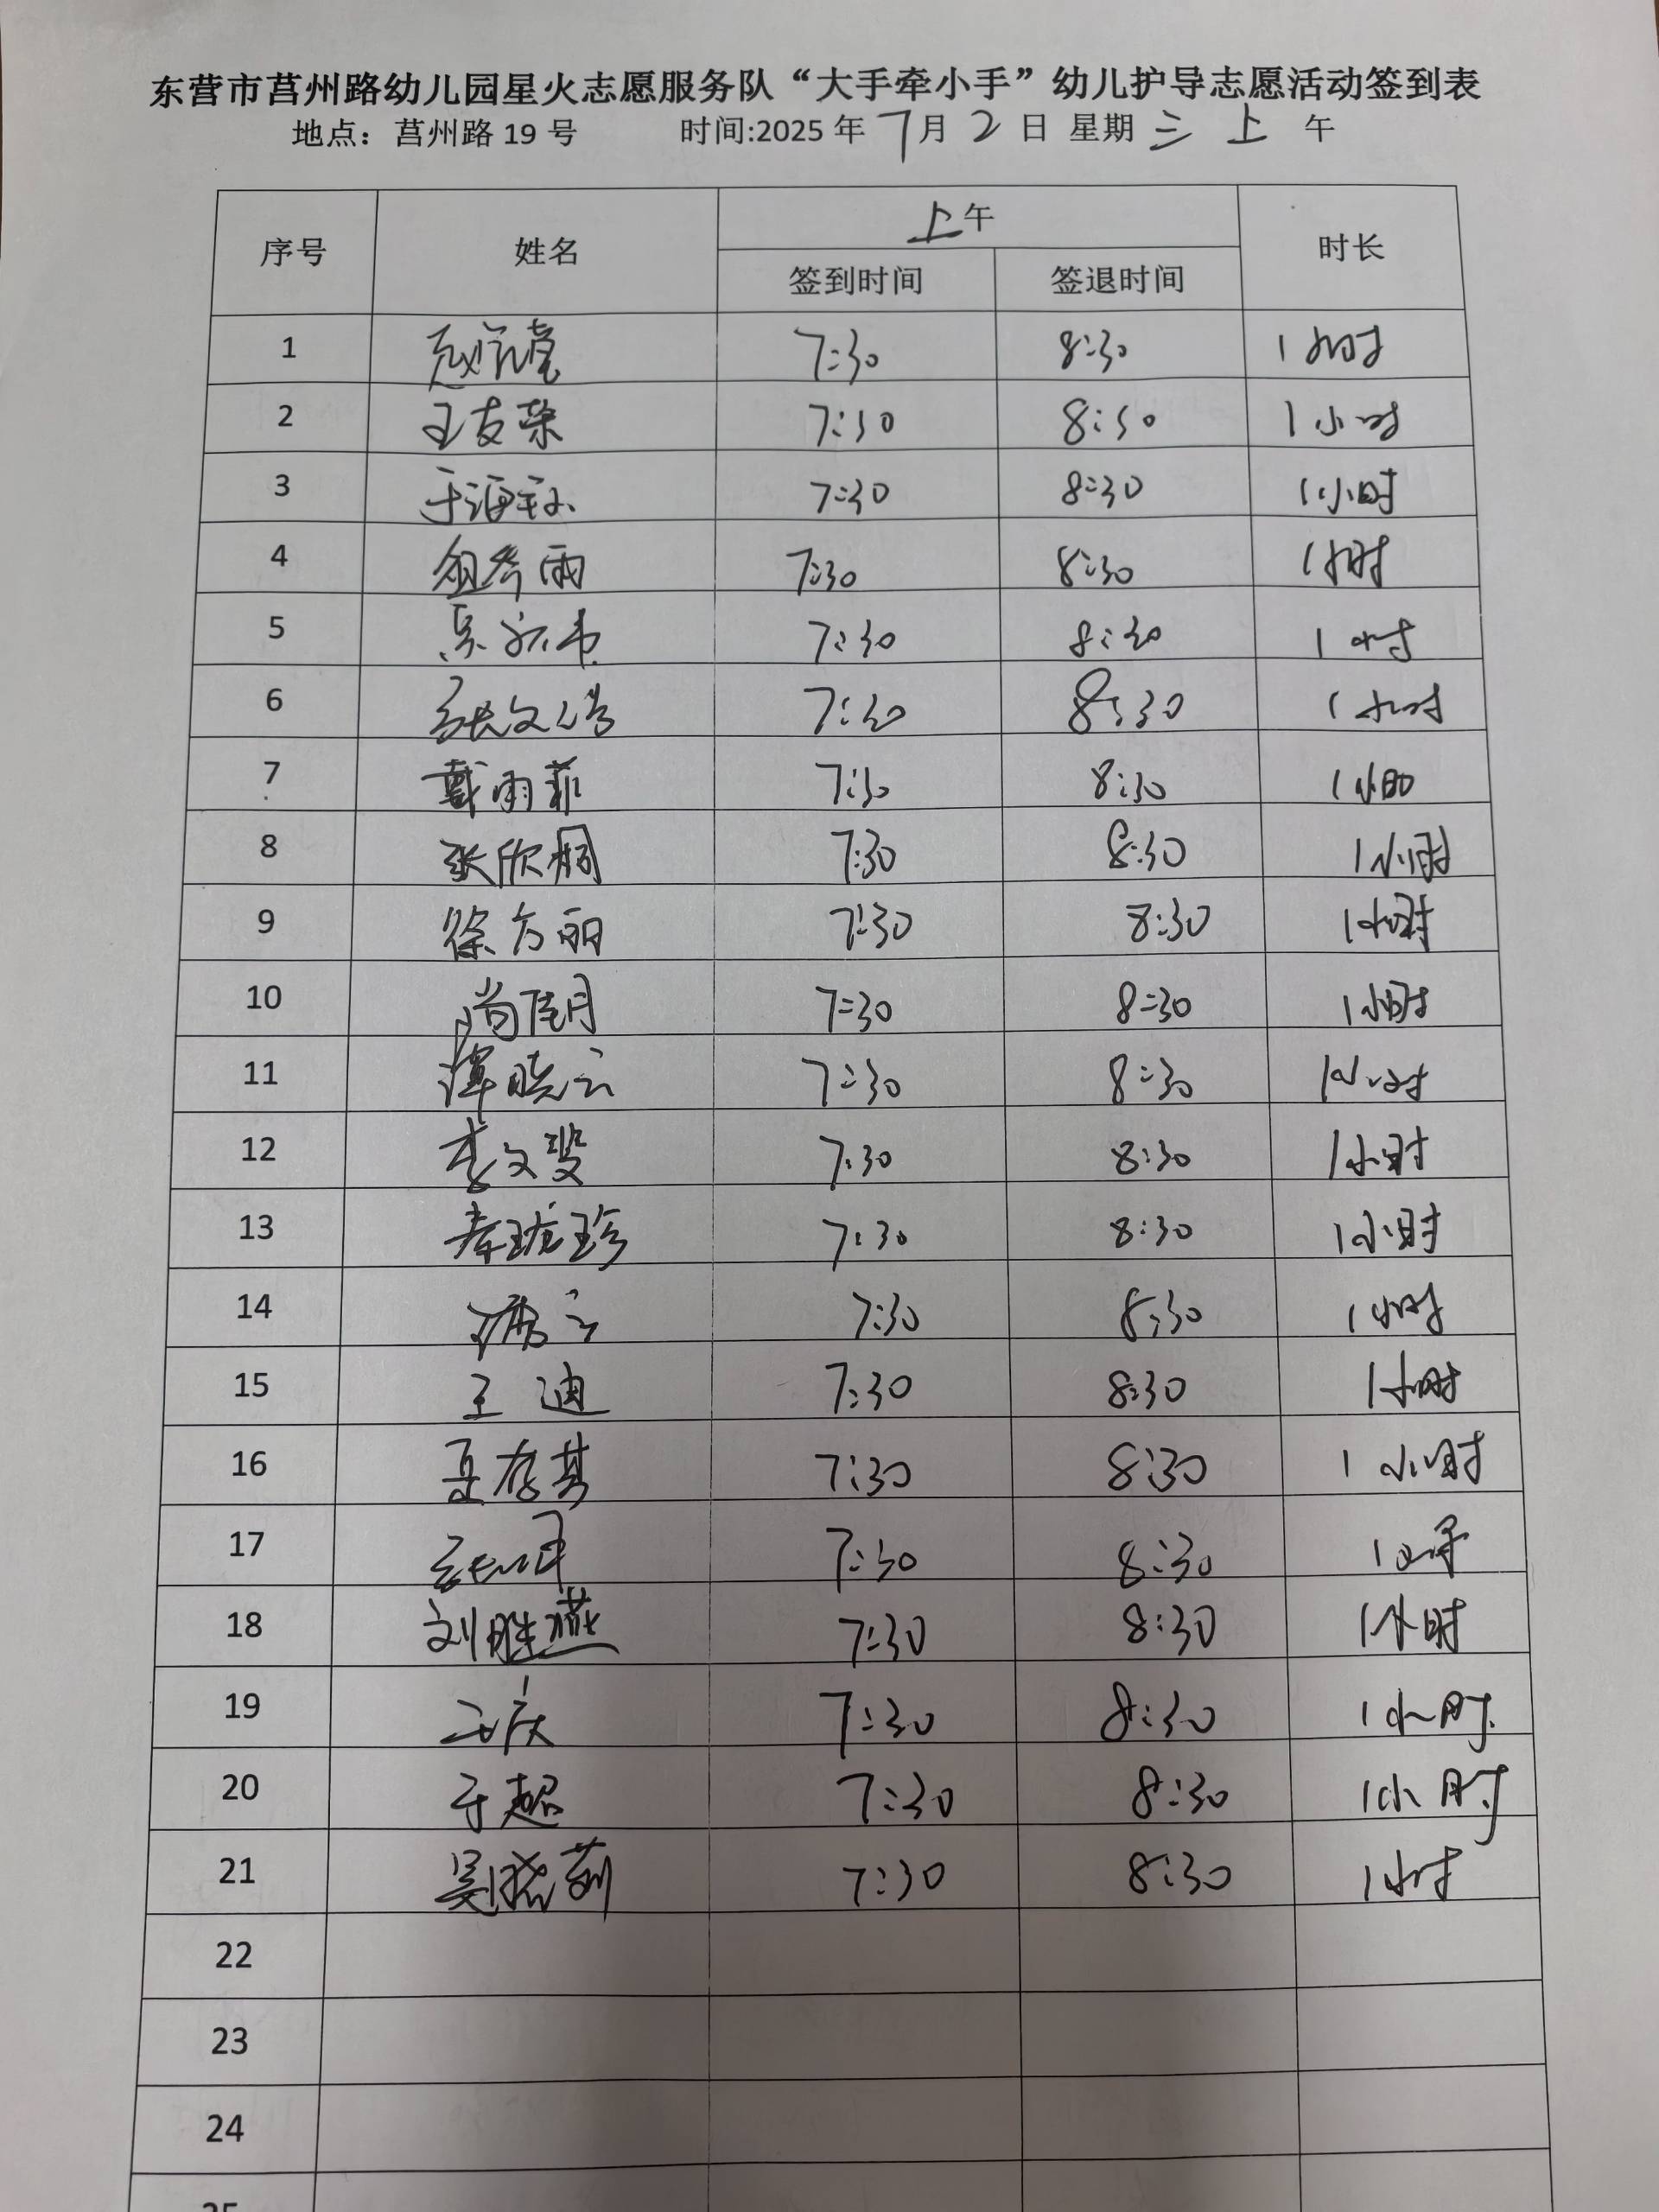 东营市莒州路幼儿园星火志愿服务队“大手牵小手”幼儿护导志愿活动签到表
地点：莒州路 19 号 时间:2025 年 7 月 2 日 星期 三 上 午
序号 姓名 上午 时长
签到时间 签退时间
1 7:30 8:30 1小时
2 王友荣 7:30 8:30 1小时
3 7:30 8:30 1小时
4 7:30 8:30 1小时
5 7:30 8:30 1小时
6 7:30 8:30 1小时
7 戴雨菲 7:30 8:30 1小时
8 张欣桐 7:30 8:30 1小时
9 徐方丽 7:30 8:30 1小时
10 尚佳月 7:30 8:30 1小时
11 谭晓云 7:30 8:30 1小时
12 李文斐 7:30 8:30 1小时
13 7:30 8:30 1小时
14 7:30 8:30 1小时
15 王迪 7:30 8:30 1小时
16 7:30 8:30 1小时
17 7:30 8:30 1小时
18 刘胜燕 7:30 8:30 1小时
19 7:30 8:30 1小时
20 于超 7:30 8:30 1小时
21 吴晓莉 7:30 8:30 1小时
22
23
24
25